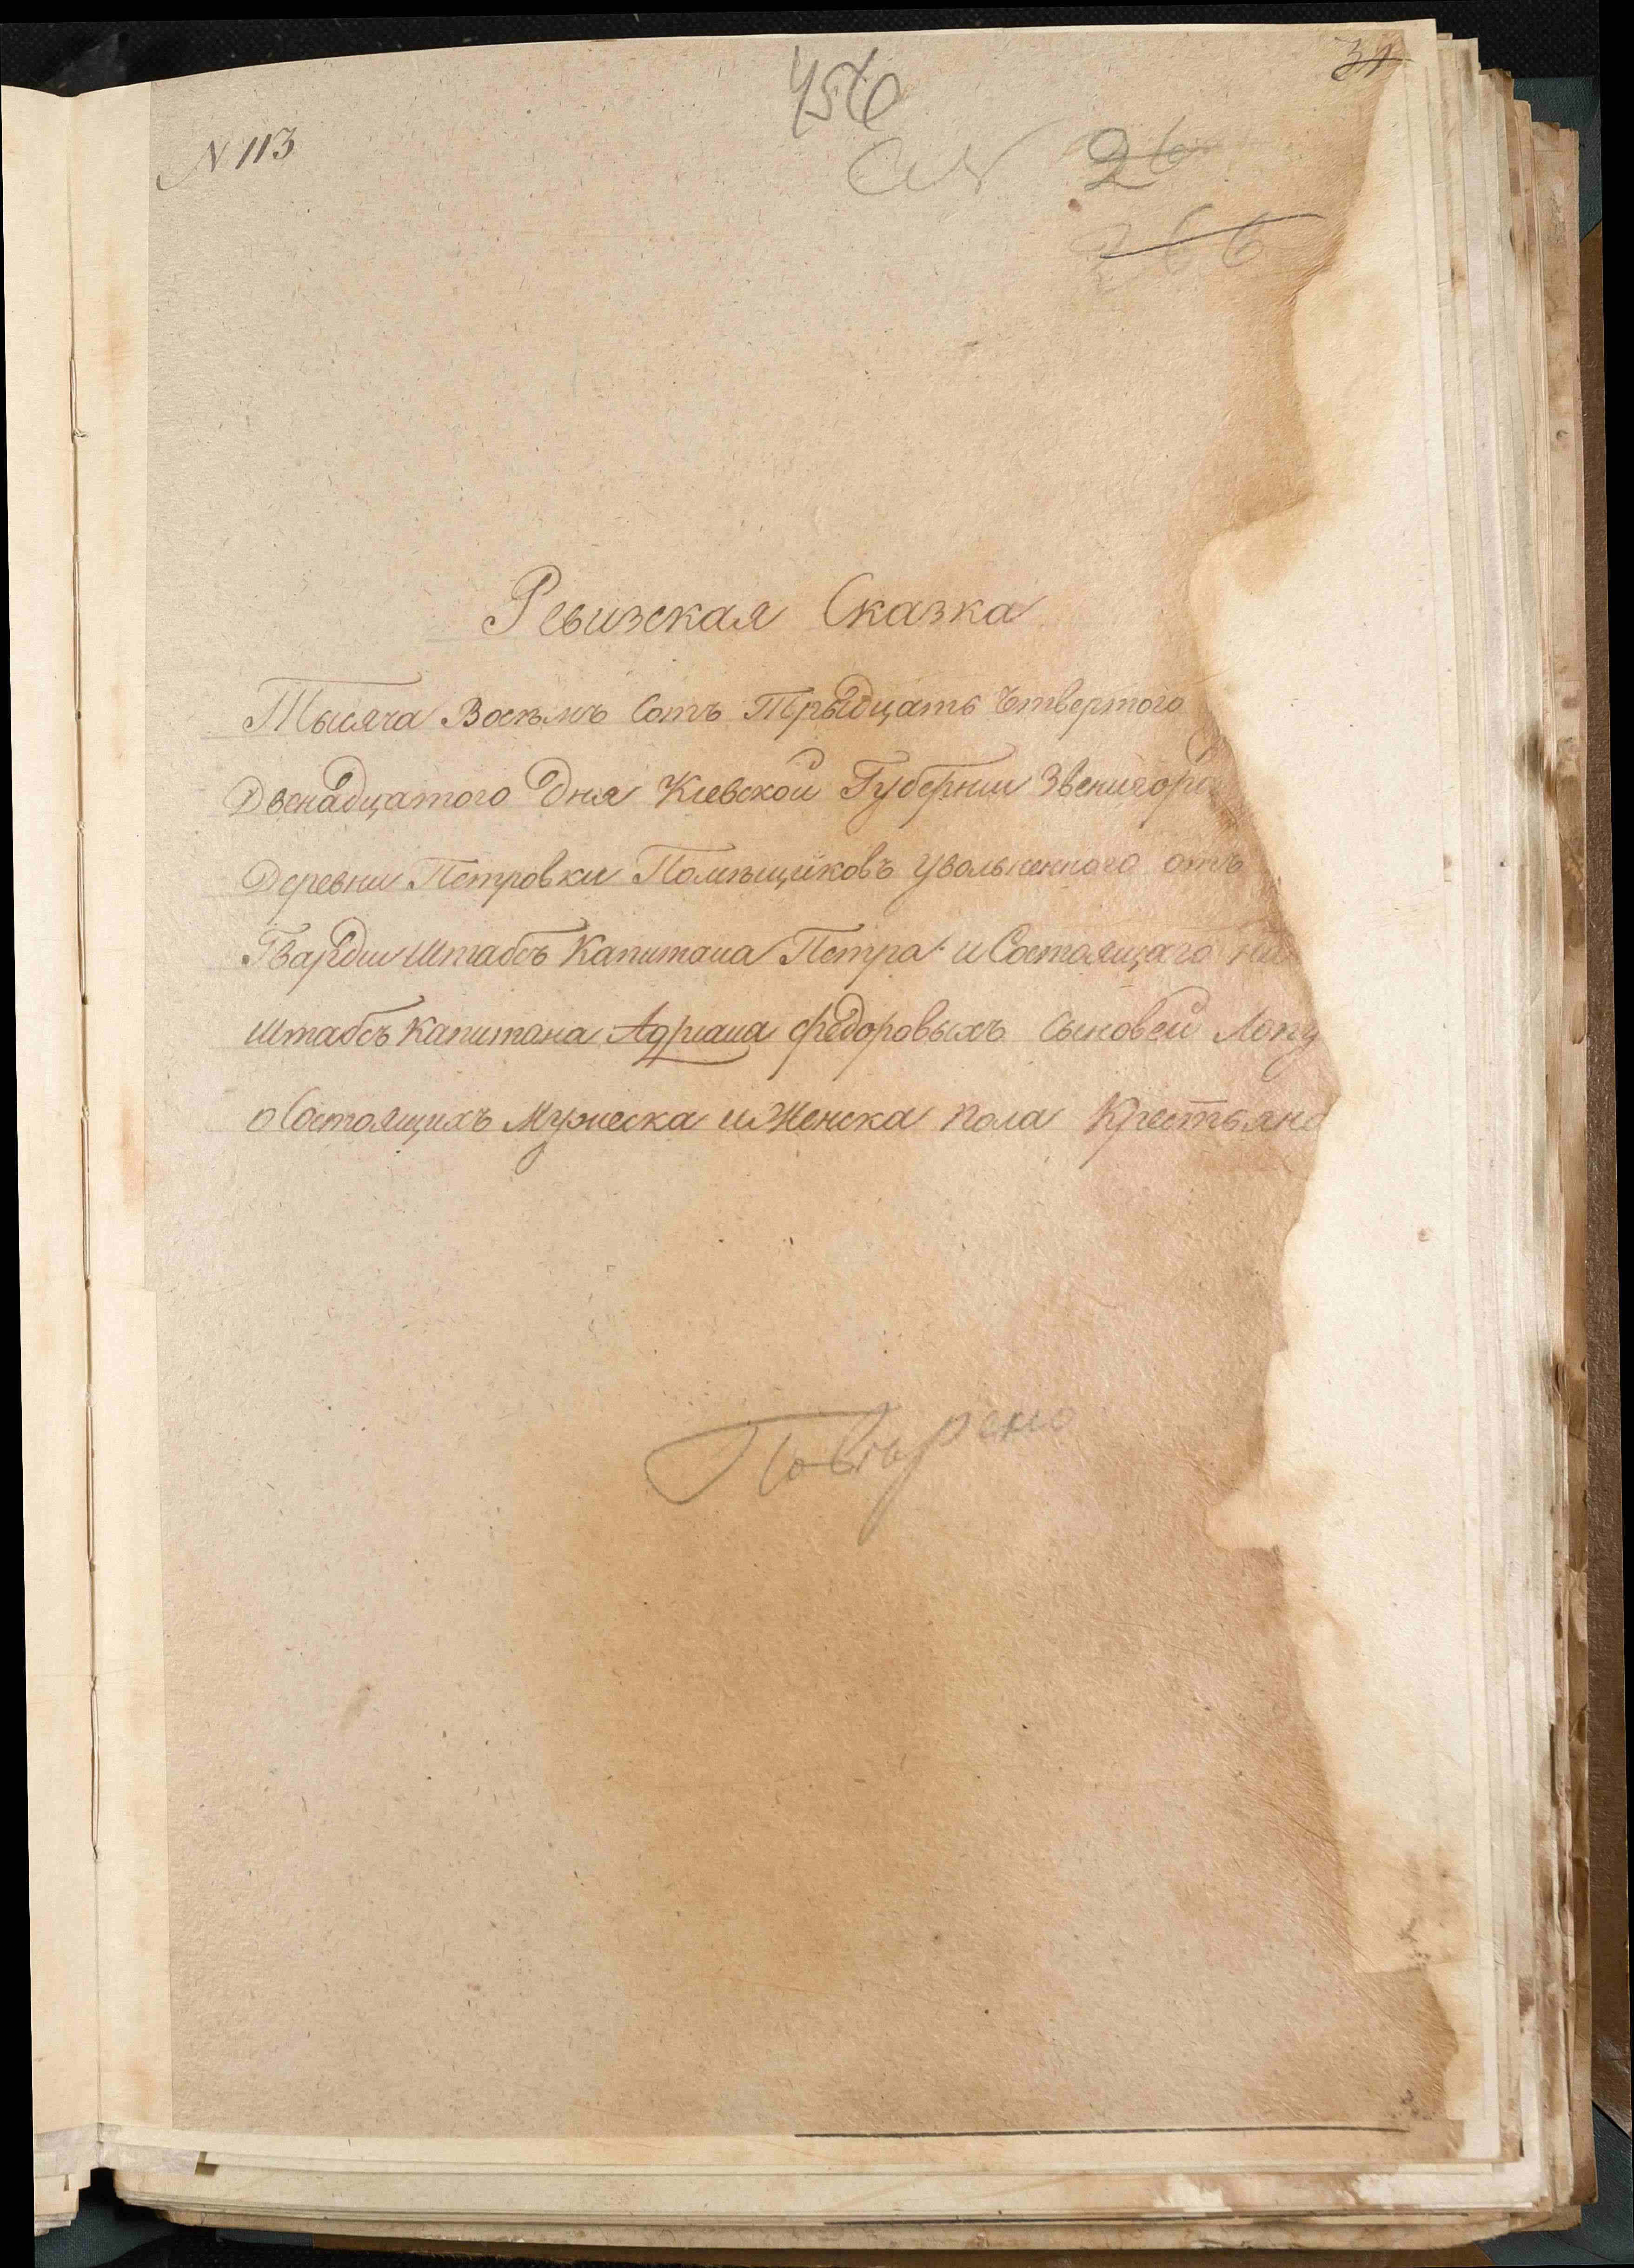 34
456
N 113
26
266
Ревизская Сказка
Тысяча Восемь Сотъ Трыдцать Четвертого
Двенадцатого Дня Киевской Губернии Звенигоро
Деревни Петровки Помѣщиковъ Уволненного отъ
Гвардии Штабсъ Капитана Петра и Состоящаго
Штабсъ Капитана Адриана Федоровыхъ Сыновей Лопу
о Состоящихъ Мужеска и Женска пола Крестьяна
Повѣрено